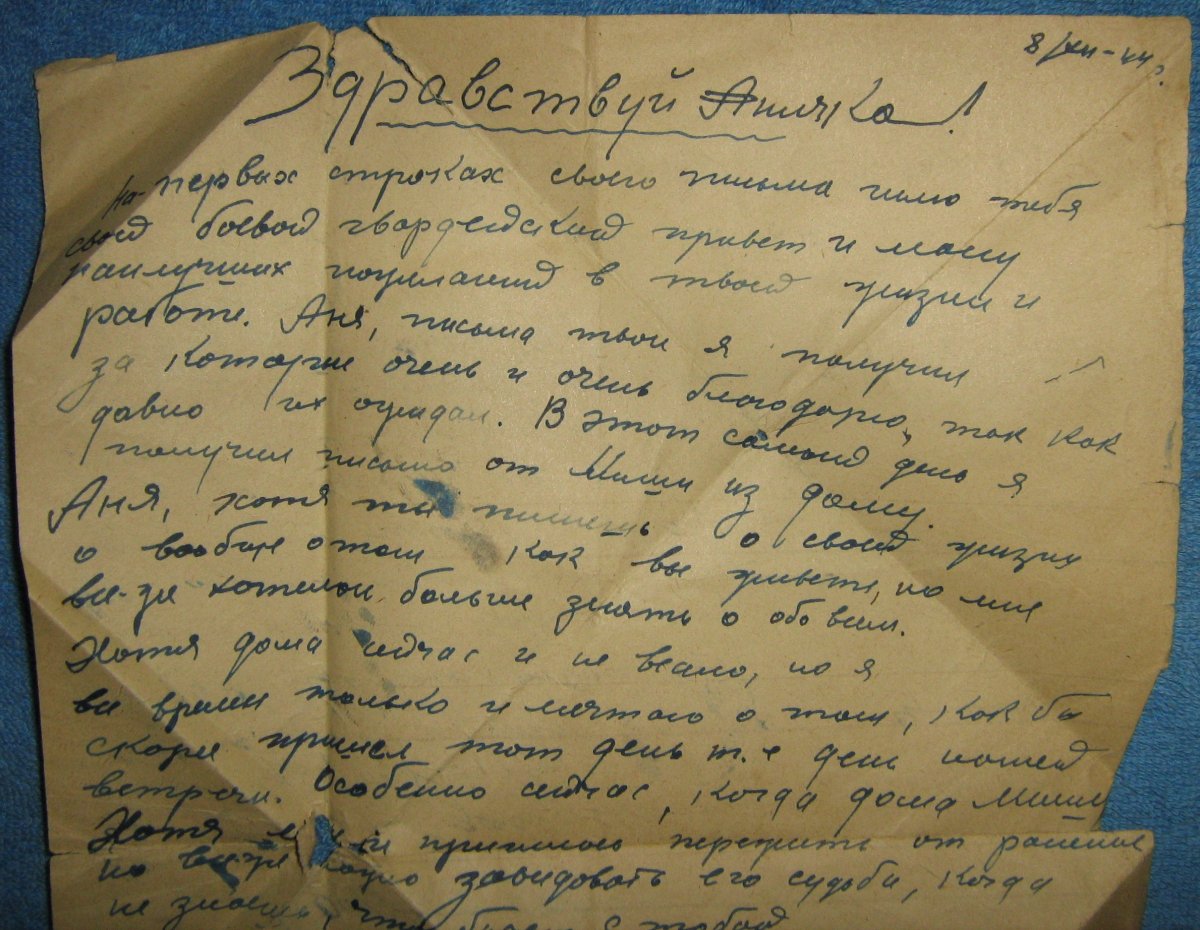 8/XII-44г.
Здравствуй Аничка!
На первых строках своего письма шлю тебя
свой боевой гвардейский привет и массу
наилучших пожеланий в твоей жизни и
работе. Аня, письма твои я получил
за которые очень и очень благодарю, так как
давно их ожидал. В этот самый день я
получил письмо от Миши из дому.
Аня, хотя ты пишешь о своей жизни
и вообще о том как вы живете, но мне
все-же хотелось больше знать о обо всем.
Хотя дома сейчас и не весело, но я
все время только и мечтаю о том, как бы
скорее пришел тот день т.е день нашей
встречи. Особенно сейчас, когда дома Миша
Хотя и пришлось пережить от ранения
но все-же можно завидовать его судьбе, когда
не знаешь, что будет с тобой